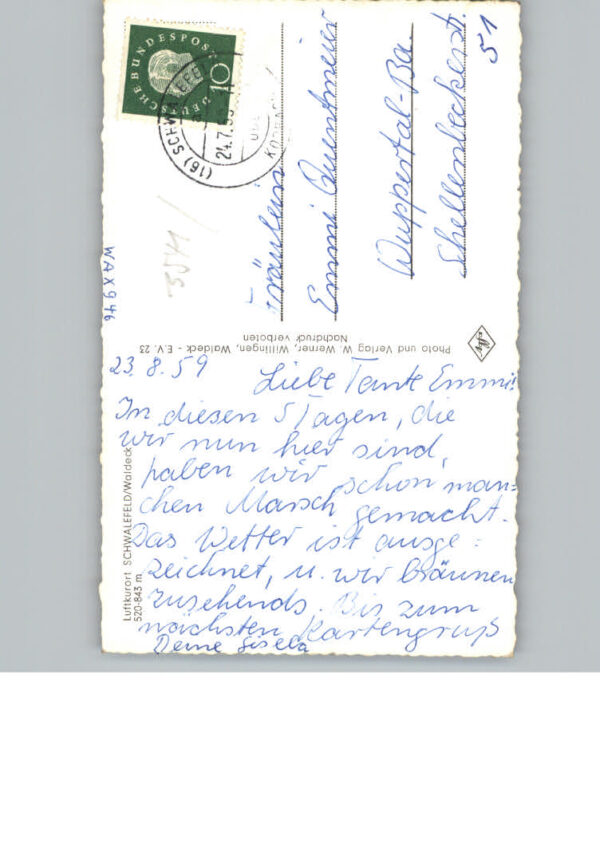 DEUTSCHE BUNDESPOST
10
(16) SCHWALEFELD
24.7.59
Fräulein
Emmi Quentmeier
Wuppertal-Ba.
Schellenbeckerst.
51
WAX946
Photo und Verlag W. Werner, Willingen, Waldeck - E.V. 23
Nachdruck verboten
Luftkurort SCHWALEFELD/Waldeck
520-843 m
23.8.59
Liebe Tante Emmi!
In diesen 5 Tagen, die
wir nun hier sind,
haben wir schon man=
chen Marsch gemacht.
Das Wetter ist ausge=
zeichnet, u. wir bräunen
zusehends. Bis zum
nächsten Kartengruß
Deine Gisela